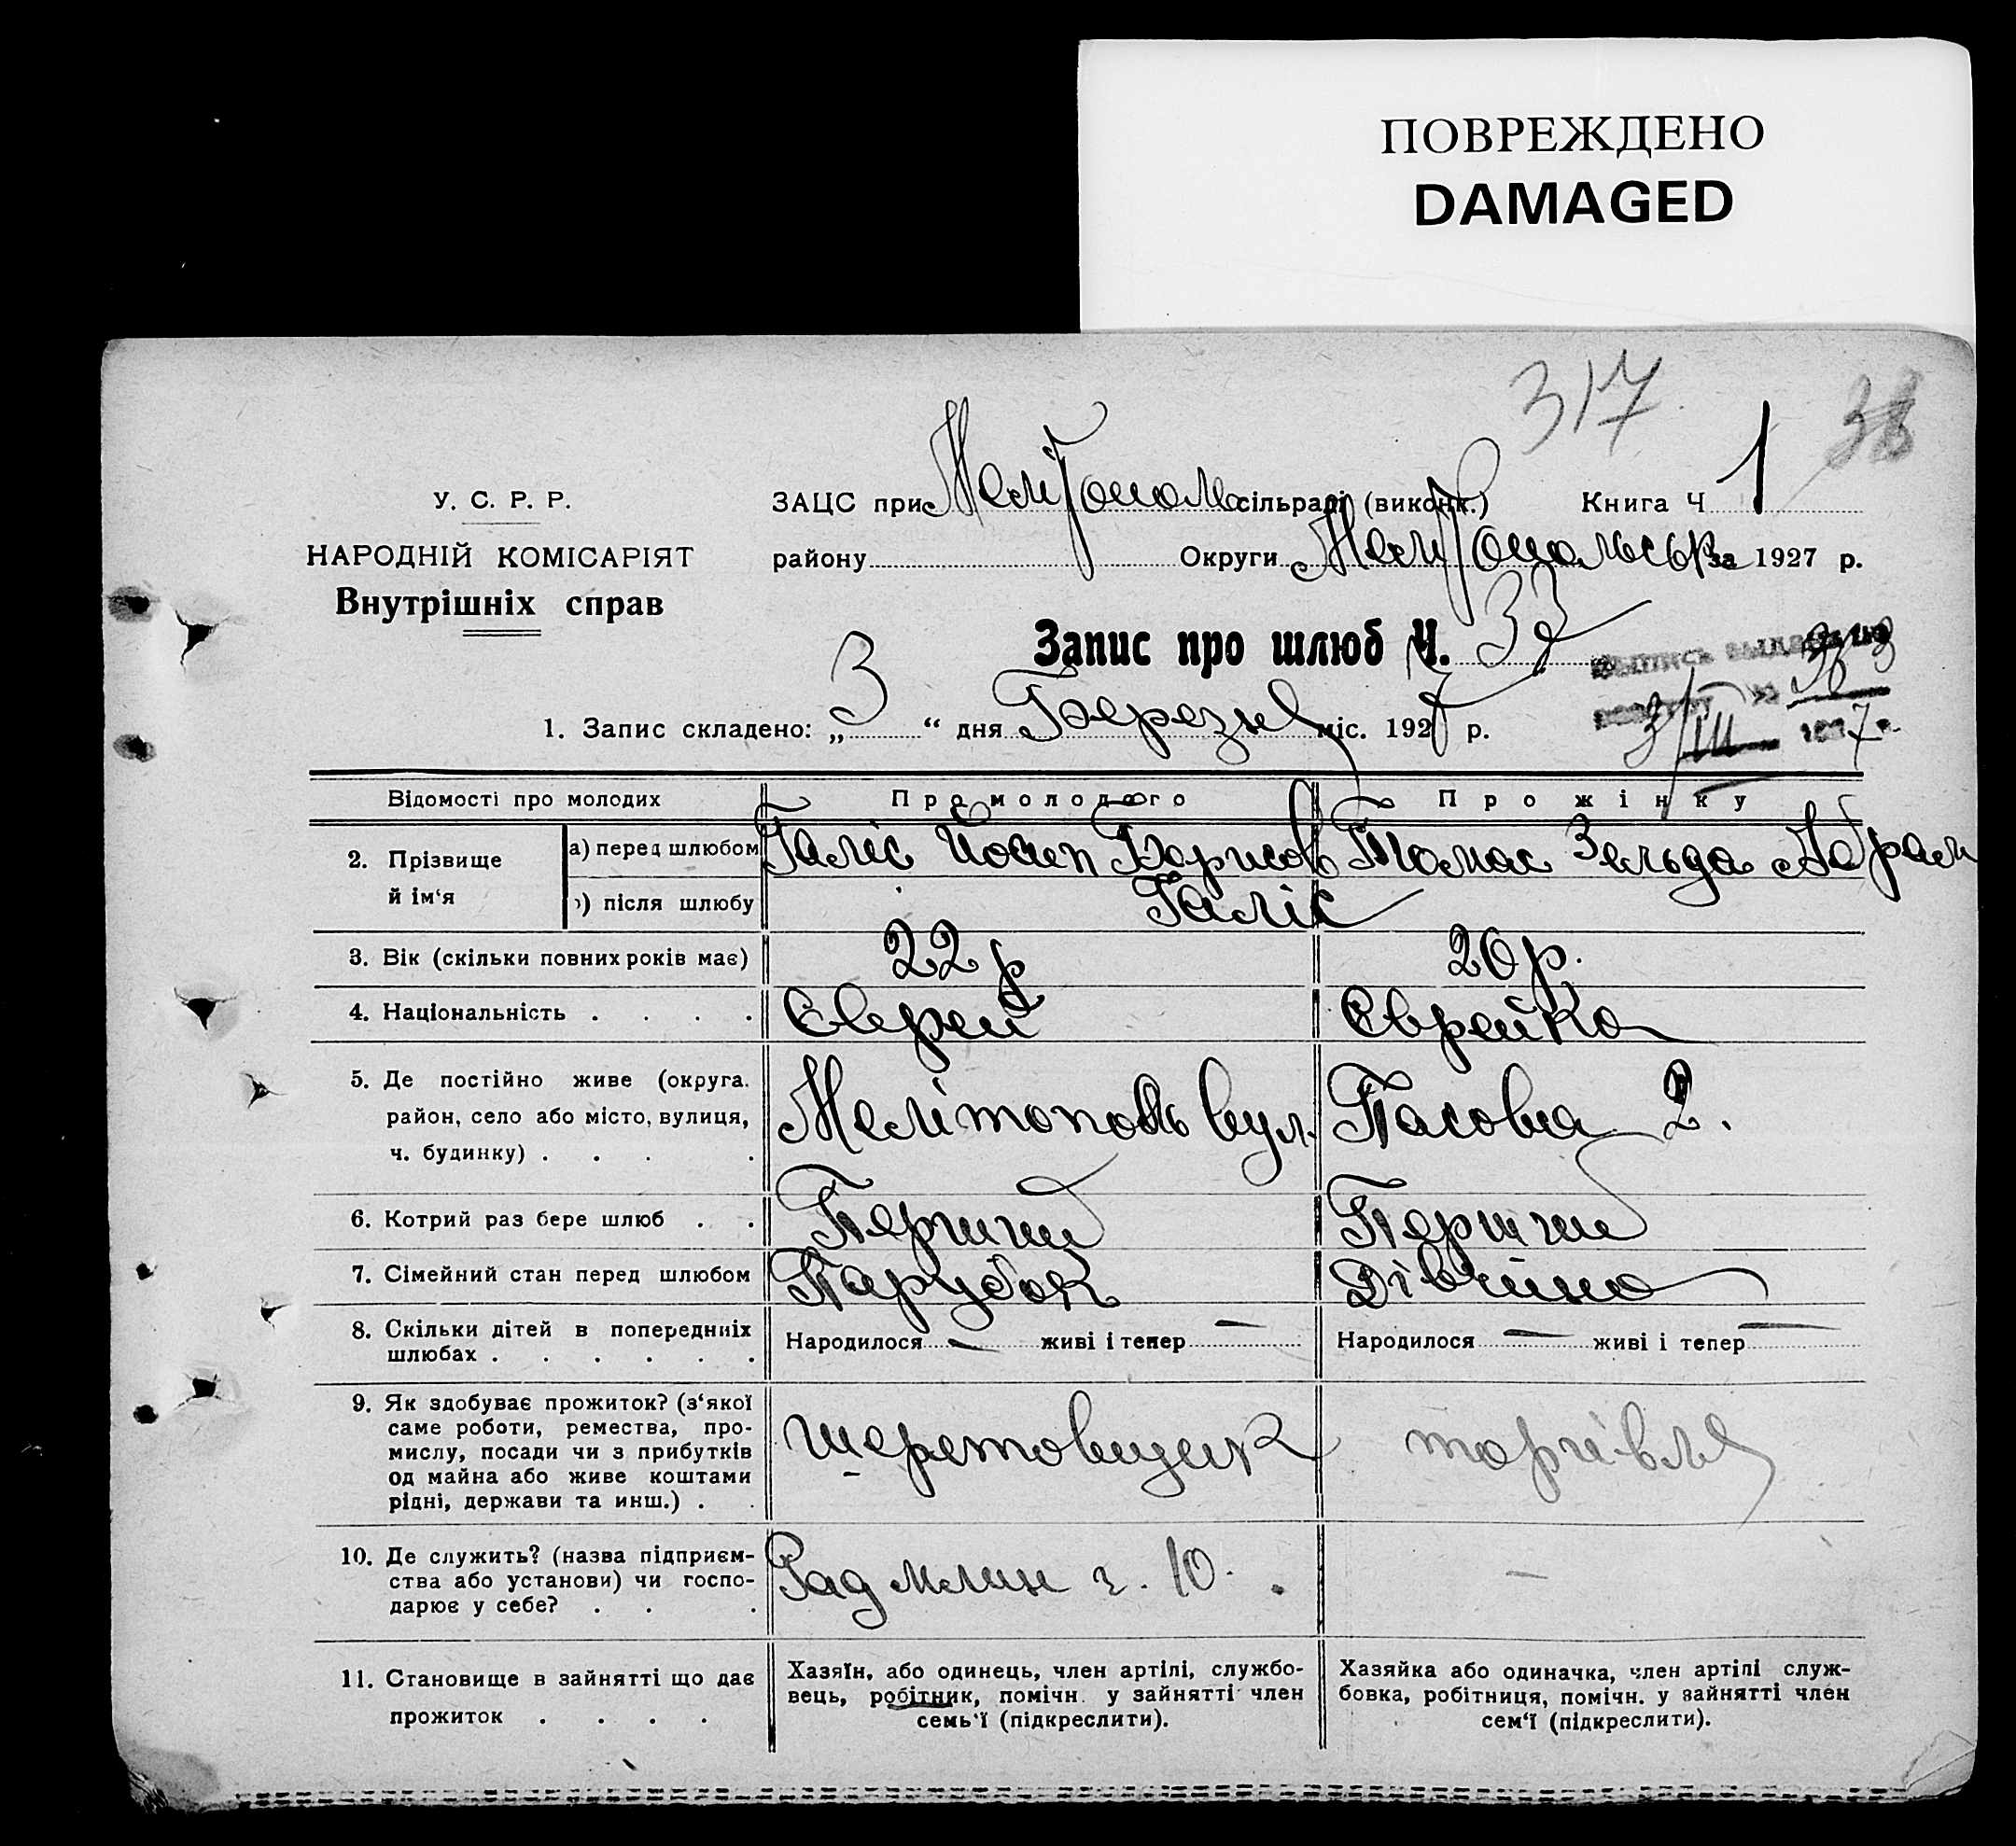 ПОВРЕЖДЕНО
DAMAGED
317
У. С. Р. Р.
ЗАЦС при Мелітополь сільраді (виконк.) Книга Ч 1
НАРОДНІЙ КОМІСАРІЯТ
району Округи Мелітопольськ за 1927 р.
Внутрішніх справ
Запис про шлюб Ч.
1. Запис складено: „ 3 “ дня Березня міс. 1927 р.
3/III 1927 г.
Відомості про молодих
Про молодого
Про жінку
2. Прізвище й ім‘я
а) перед шлюбом
Галіс Йосип Борисов
Томас Зельда Абрам
) після шлюбу
Галіс
3. Вік (скільки повних років має)
22 р
20 р.
4. Національність . . . .
Єврей
Єврейка
5. Де постійно живе (округа.
район, село або місто, вулиця,
ч. будинку) . . . .
Мелітополь вул.
2.
6. Котрий раз бере шлюб . .
Перший
Перший
7. Сімейний стан перед шлюбом
Парубок
Дівчина
8. Скільки дітей в попередніх
шлюбах . . . . . .
Народилося — живі і тепер —
Народилося — живі і тепер —
9. Як здобуває прожиток? (з‘якої
саме роботи, ремества, про-
мислу, посади чи з прибутків
од майна або живе коштами
рідні, держави та инш.) . .
торгівля
10. Де служить? (назва підприєм-
ства або установи) чи госпо-
дарює у себе? . . .
Рад млин ч. 10.
—
11. Становище в зайнятті що дає
прожиток . . . .
Хазяїн, або одинець, член артілі, службо-
вець, робітник, помічн. у зайнятті член
семь‘ї (підкреслити).
Хазяйка або одиначка, член артілі служ-
бовка, робітниця, помічн. у зайнятті член
сем‘ї (підкреслити).